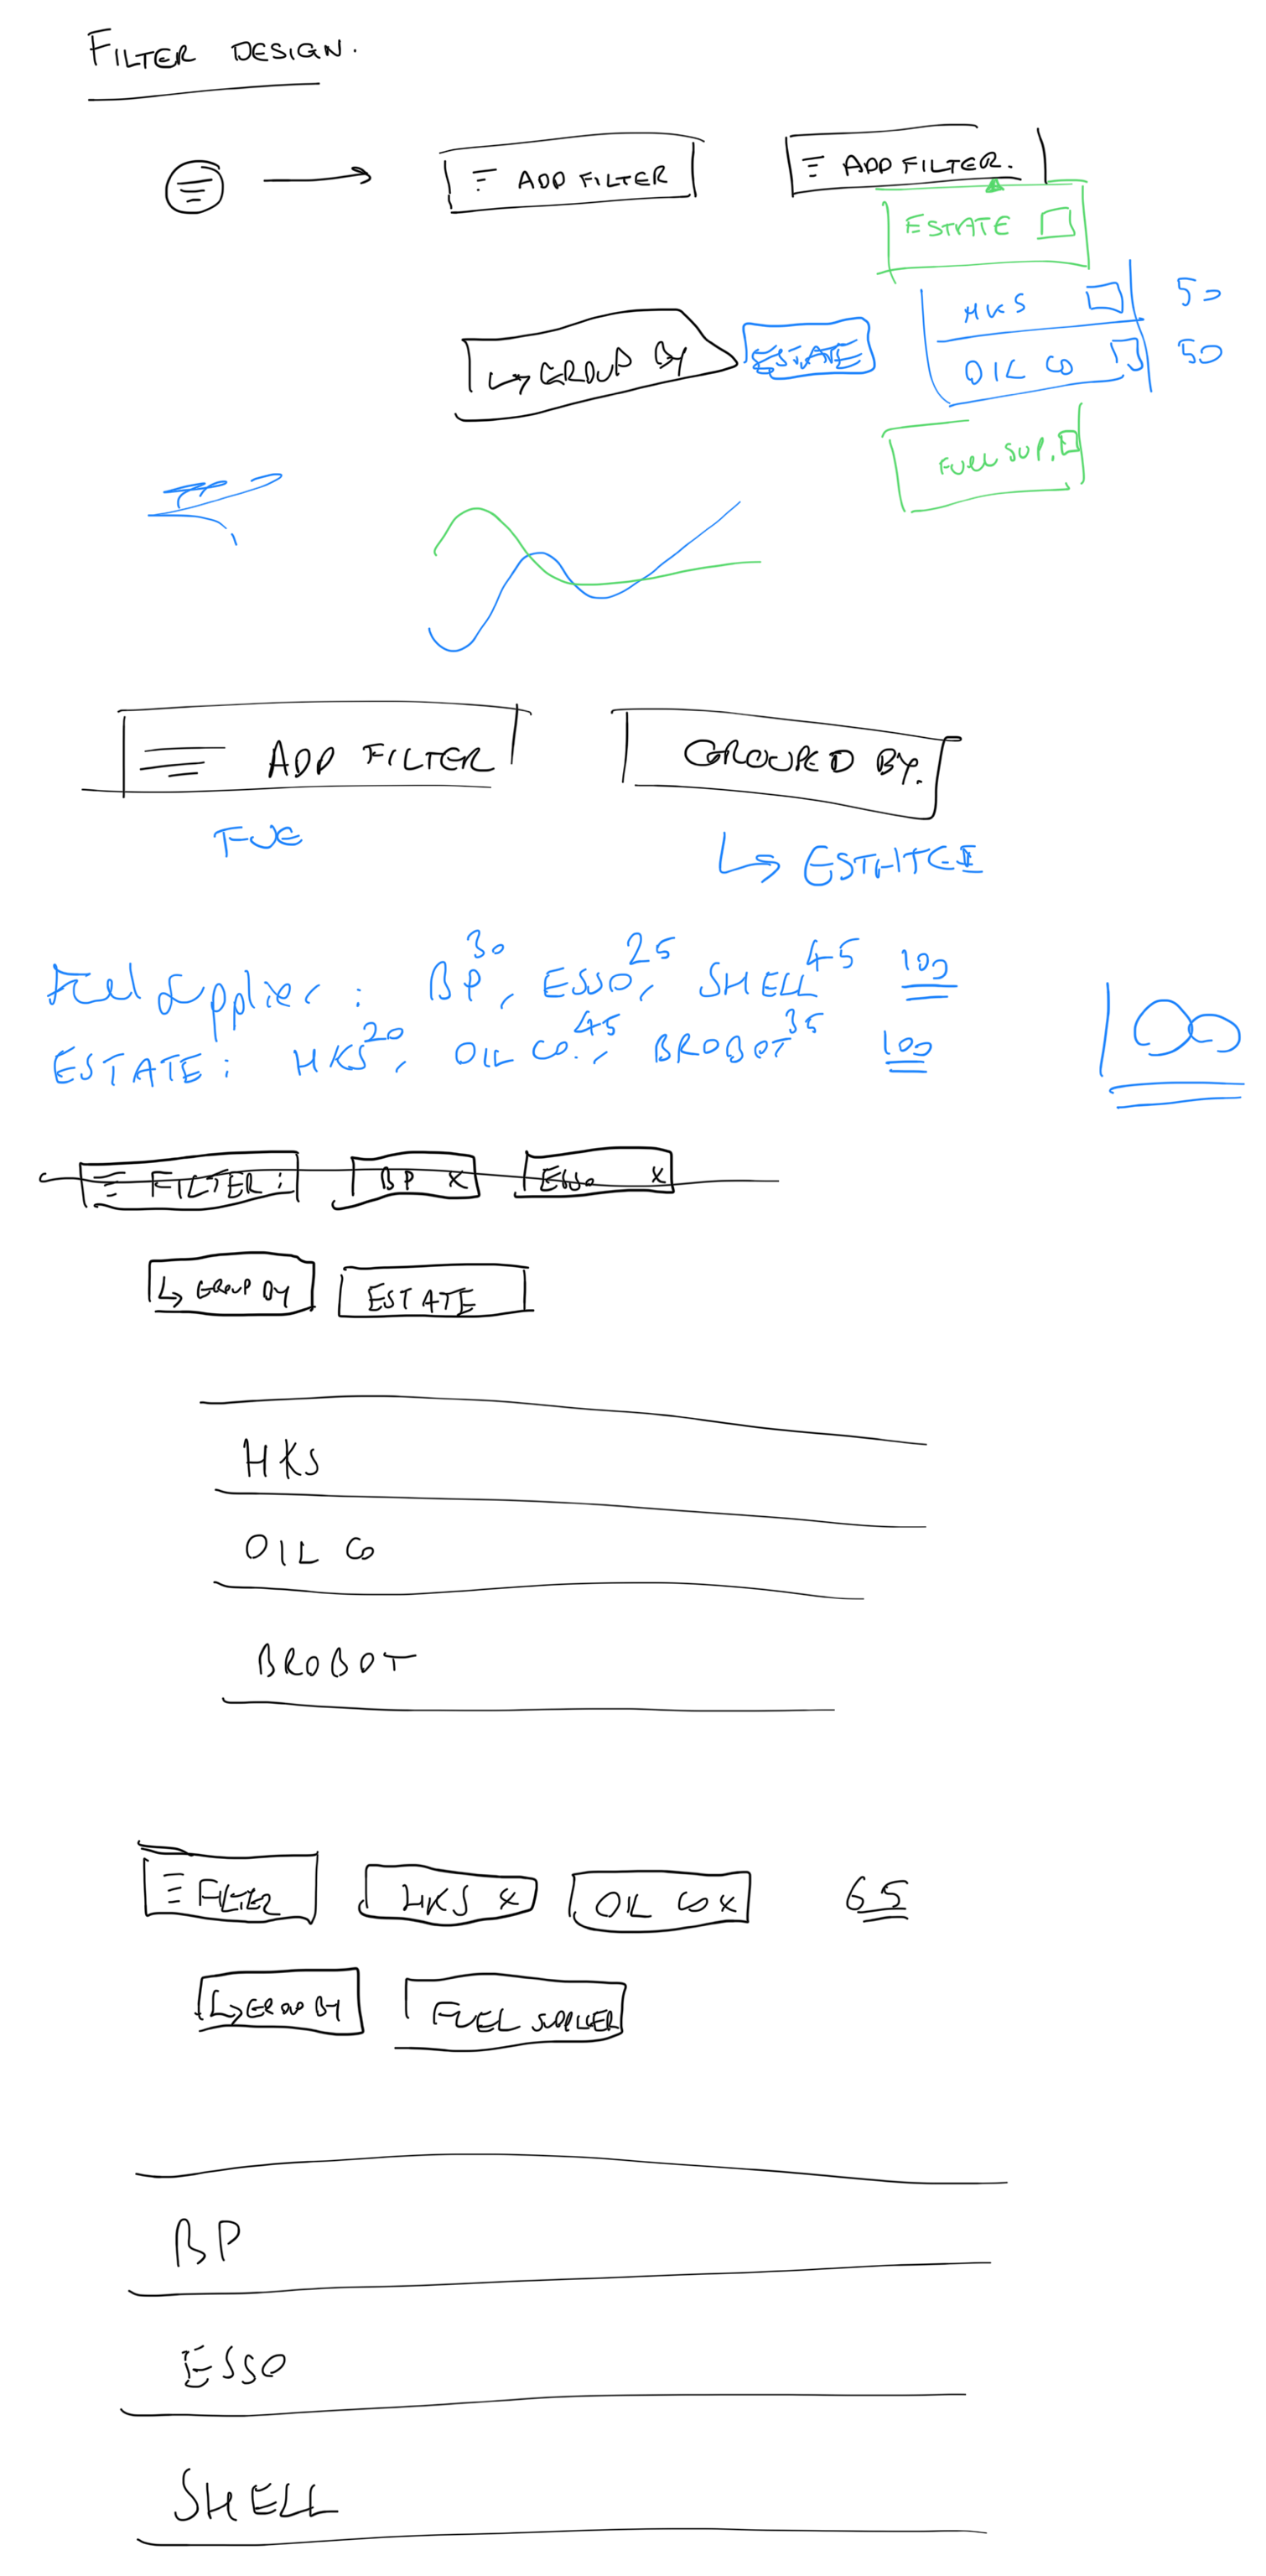 FILTER DESIGN.
ADD FILTER
ADD FILTER.
ESTATE
HKS 50
GROUP BY ESTATE
OIL CO 50
FUEL SUP.
ADD FILTER
GROUPED BY.
FUE
Fuel Supplier : BP, 30 ESSO, 25 SHELL 45 100
ESTATE : HKS 20, OIL CO. 45, BROBOT 35 100
100
FILTER : BP X ESSO X
GROUP BY ESTATE
HKS
OIL CO
BROBOT
FILTER HKS X OIL CO X 65
GROUP BY FUEL SUPPLIER
BP
ESSO
SHELL